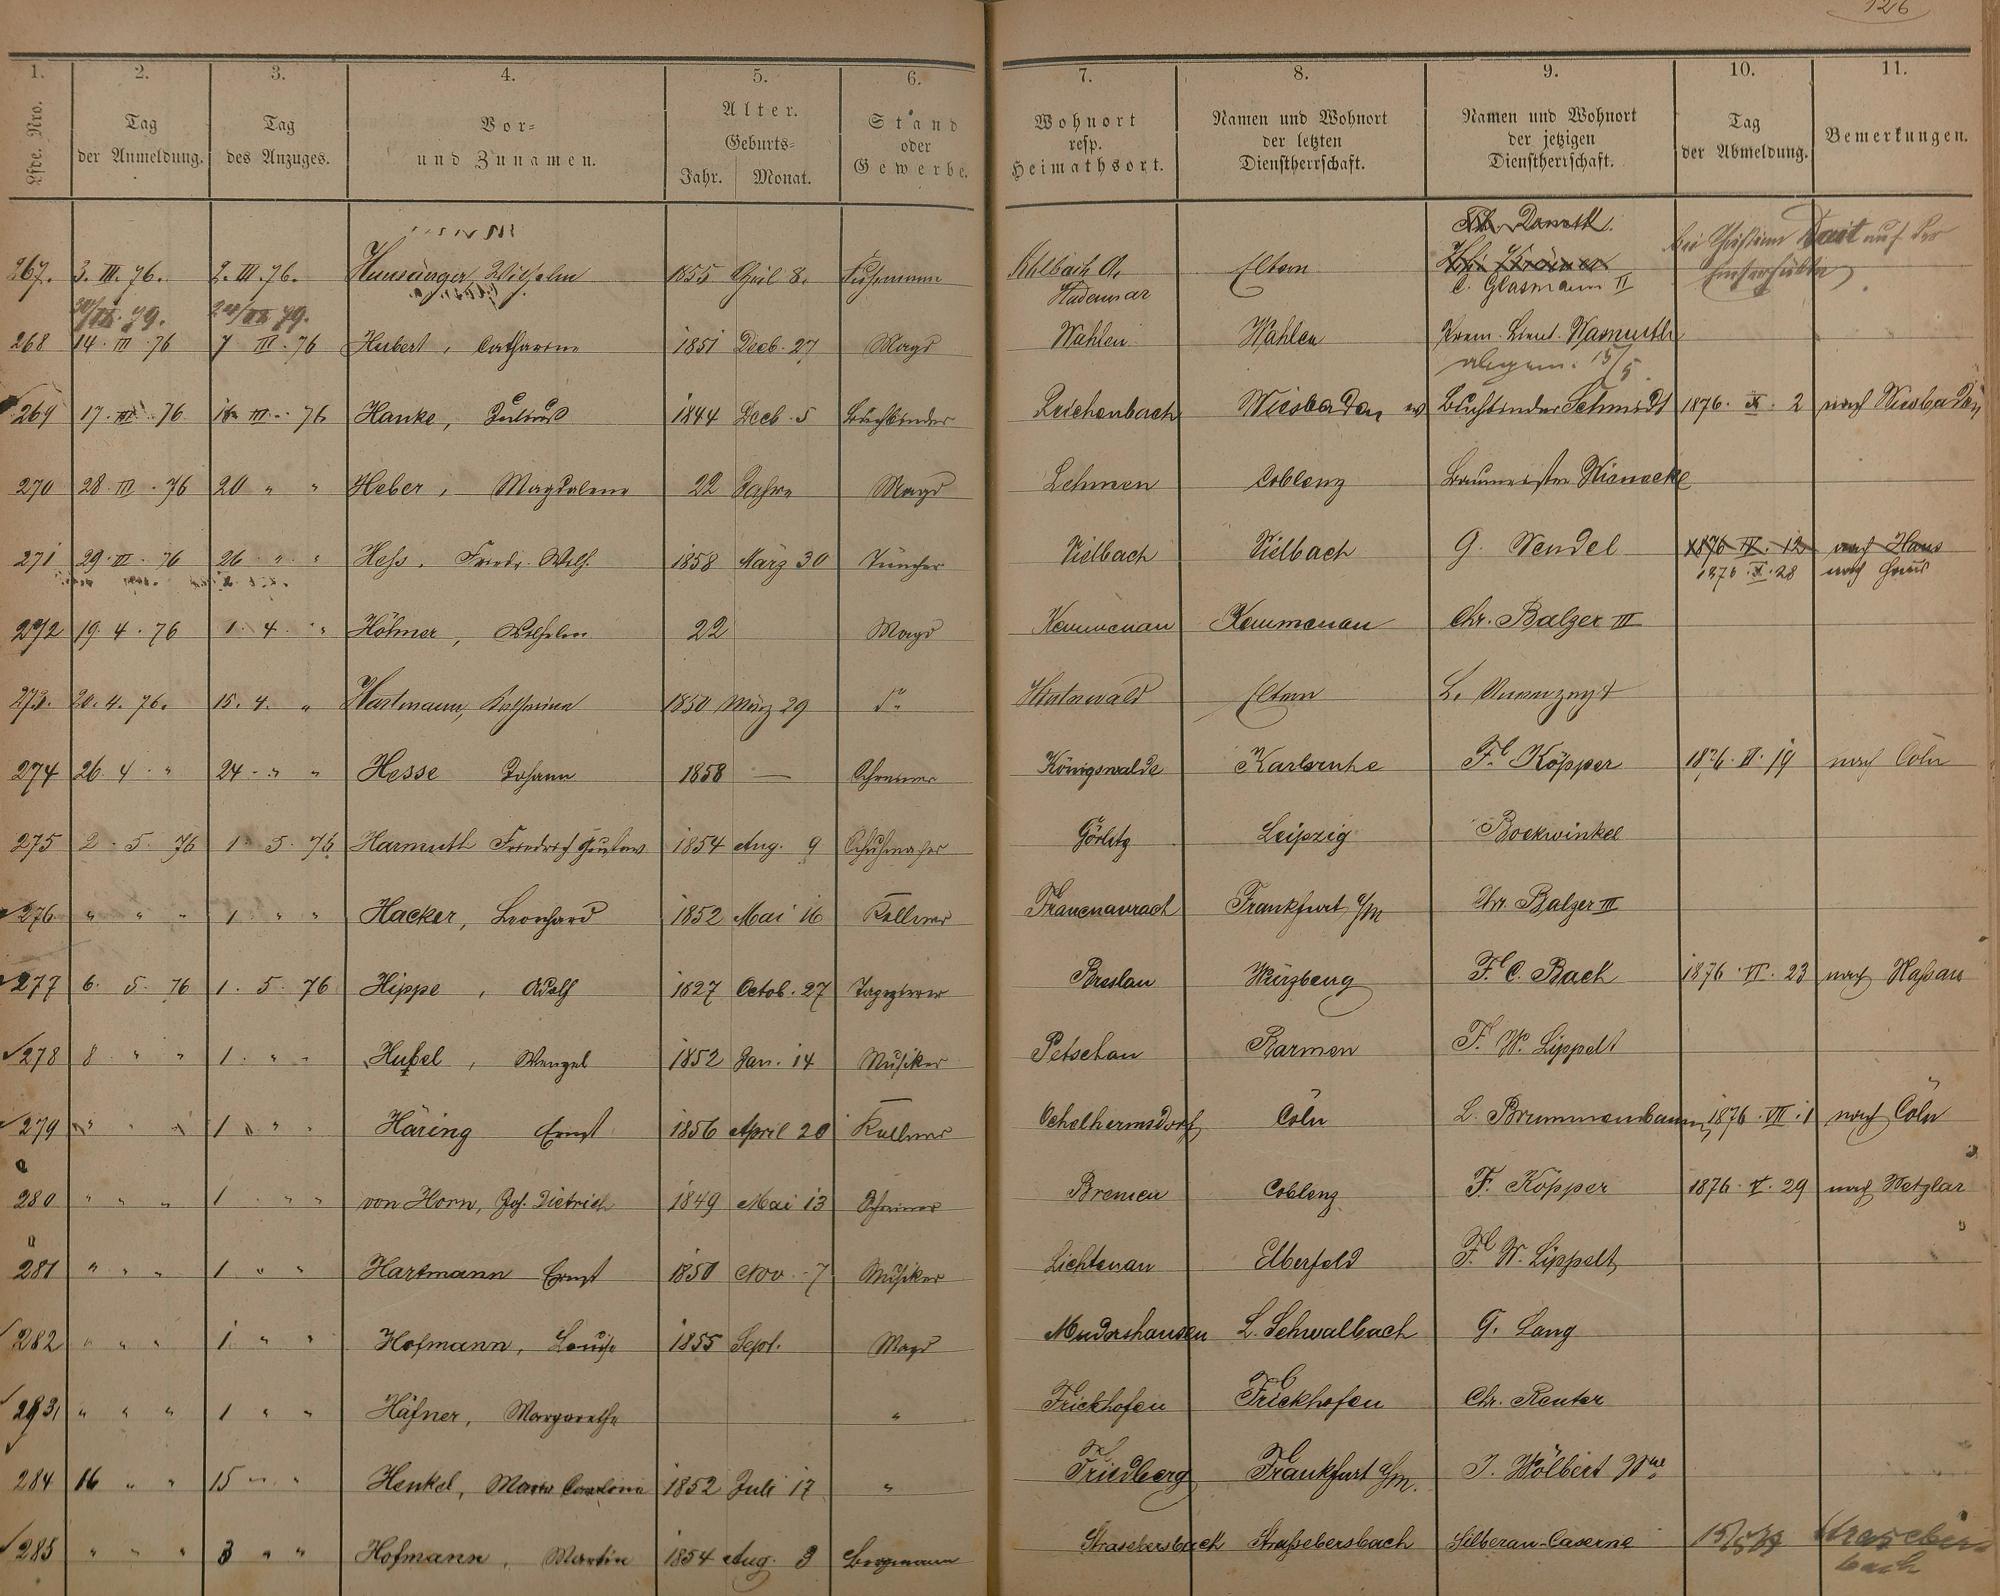 126
1. 2. 3. 4. 5. 6. 7. 8. 9. 10. 11.
Lfde. Nro.
Tag der Anmeldung.
Tag des Anzuges.
Vor- und Zunamen.
Alter. Geburts- Jahr. Monat.
Stand oder Gewerbe.
Wohnort resp. Heimathsort.
Namen und Wohnort der letzten Dienstherrschaft.
Namen und Wohnort der jetzigen Dienstherrschaft.
Tag der Abmeldung.
Bemerkungen.
267. 3. III. 76. 2. III. 76. Hunsänger, Wilhelm 1855 April 8. Fuhrmann Ahlbach A. Hadamar Eltern
C. Glasmann II
268 14. III. 76 7 III. 76 Hubert, Catharina 1851 Decb. 27 Magd Wahlen Wahlen Prem. Lieut. Warnuth
269 17. III. 76 16 III. 76 Hanke, Julius 1844 Decb. 5 Buchbinder Reichenbach Wiesbaden Buchbinder Schmidt 1876. IX. 2 nach Wiesbaden
270 28. III. 76 20 " " Heber, Magdalena 22 Jahre Magd Lehmen Coblenz Baumeister Wienecke
271 29. III. 76 26 " " Heß, Friedr. Wilh. 1858 März 30 Tüncher Vielbach Vielbach G. Wendel 1876 IV. 12 nach Haus
1876. X. 28 nach Haus
272 19. 4. 76 1. 4. " Höhner, Wilhelm 22 Magd Kemmenau Kemmenau Chr. Balzer III
273. 20. 4. 76. 15. 4. " Hartmann, Katharina 1850 März 29 do Eltern L.
274 26. 4. " 24. " " Hesse Johann 1858 — Schreiner Königswalde Karlsruhe Fr. Köpper 1876. VI. 19 nach Cöln
275 2. 5. 76 1. 5. 76 Harmuth Friedrich Gustav 1854 Aug. 9 Schuhmacher Görlitz Leipzig Bockwinkel
276 " " " 1 " " Hacker, Leonhard 1852 Mai 16 Kellner Frauenaurach Frankfurt a/M Chr. Balzer III
277 6. 5. 76 1. 5. 76 Hippe, Adolf 1827 Octob. 27 Tapezierer Breslau Würzburg F. C. Bach 1876. VI. 23 nach Naßau
278 8 " " 1. " " Hußel, Wenzel 1852 Jan. 14 Musiker Petschau Barmen F. W. Lippelt
279 " " " 1 " " Häring Ernst 1856 April 20 Kellner Ochelhermsdorf Cöln L. Brummenbaum 1876. VII. 1 nach Cöln
280 " " " 1 " " von Horn, Joh. Dietrich 1849 Mai 13 Schreiner Bremen Coblenz F. Köpper 1876. V. 29 nach Wetzlar
281 " " " 1 " " Hartmann Ernst 1850 Nov. 7 Musiker Lichtenau Elberfeld F. W. Lippelt
282 " " " 1 " " Hofmann, Louise 1855 Sept. Magd Mudershausen L. Schwalbach G. Lang
283 " " " 1 " " Häfner, Margarethe " Frickhofen Frickhofen Chr. Reuter
284 16 " " 15 " " Henkel, Maria Carolina 1852 Juli 17 " Friedberg Frankfurt a/M. J. Wölbert Wwe
285 " " " 3 " " Hofmann, Martin 1854 Aug. 3 Bergmann Strasebersbach Straßebersbach Silberau-Caserne Strasebersbach